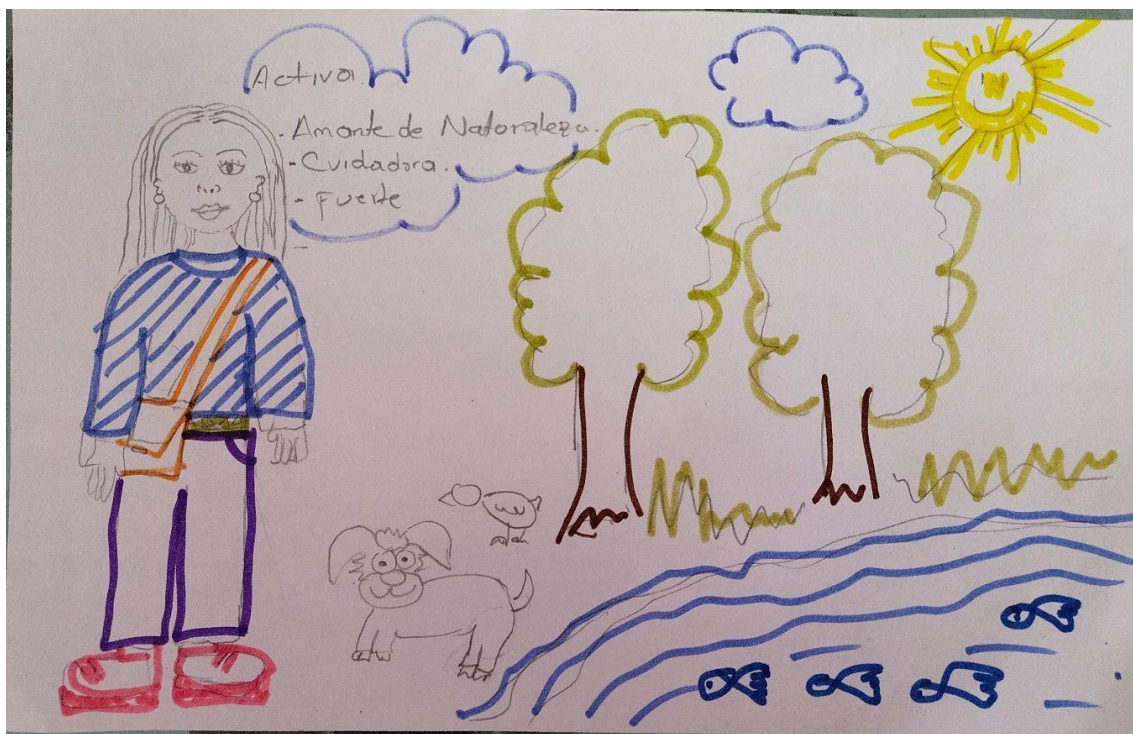 Activa.
- Amante de Natoraleza.
- Cuidadora.
- Fuerte
-